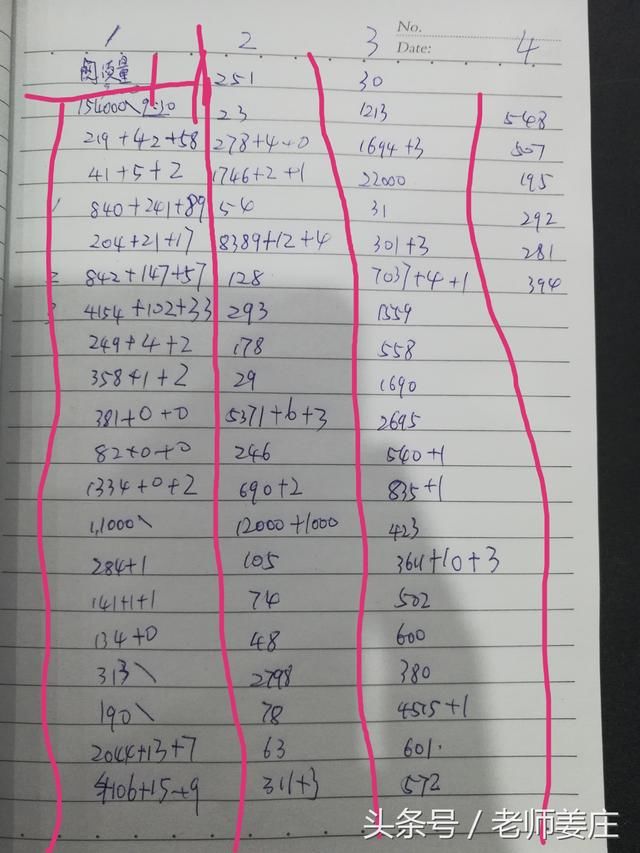 1 2 3 4
No.
Date:
阅读量
154000\9.20
219+42+58
41+5+2
1 840+241+89
204+21+17
2 842+147+57
3 4154+102+33
249+4+2
358+1+2
381+0+0
82+0+0
1334+0+2
1,1000\
284+1
141+1+1
134+0
313\
190\
2044+13+7
4106+15+9
251
23
278+4+0
1746+2+1
54
8389+12+4
128
293
178
29
5371+6+3
246
690+2
12000+1000
105
74
48
2798
78
63
311+3
30
1213
1694+3
22000
31
301+3
7037+4+1
1559
558
1690
2695
540+1
835+1
423
3641+10+3
502
600
380
4515+1
601.
572
548
507
195
292
281
394
头条号 / 老师姜庄